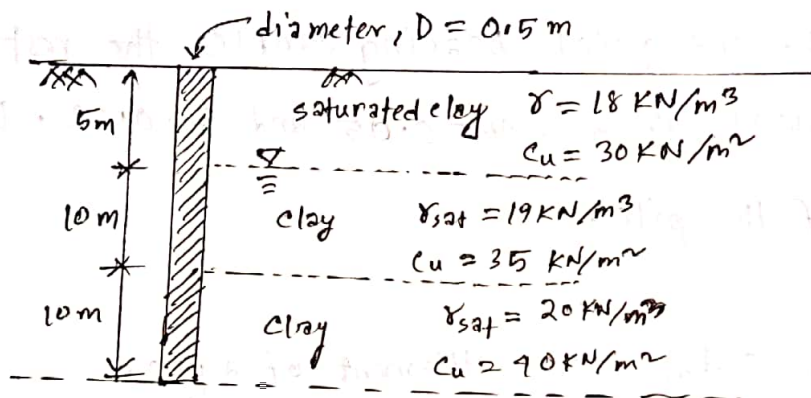 diameter, D = 0.5 m
5m
saturated clay γ = 18 KN/m³
Cu = 30 KN/m²
10 m
clay γsat = 19 KN/m³
Cu = 35 KN/m²
10 m
Clay γsat = 20 KN/m³
Cu = 90 KN/m²